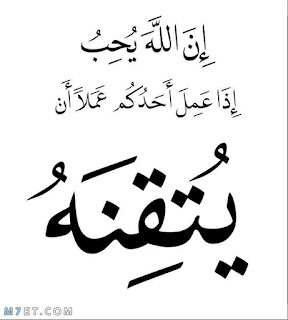 إِنَ اللَّهَ يُحِبُ
إِذَا عَمِلَ أَحَدُكُم عَمَلاً أَن
يُتقِنَهُ
M7ET.COM